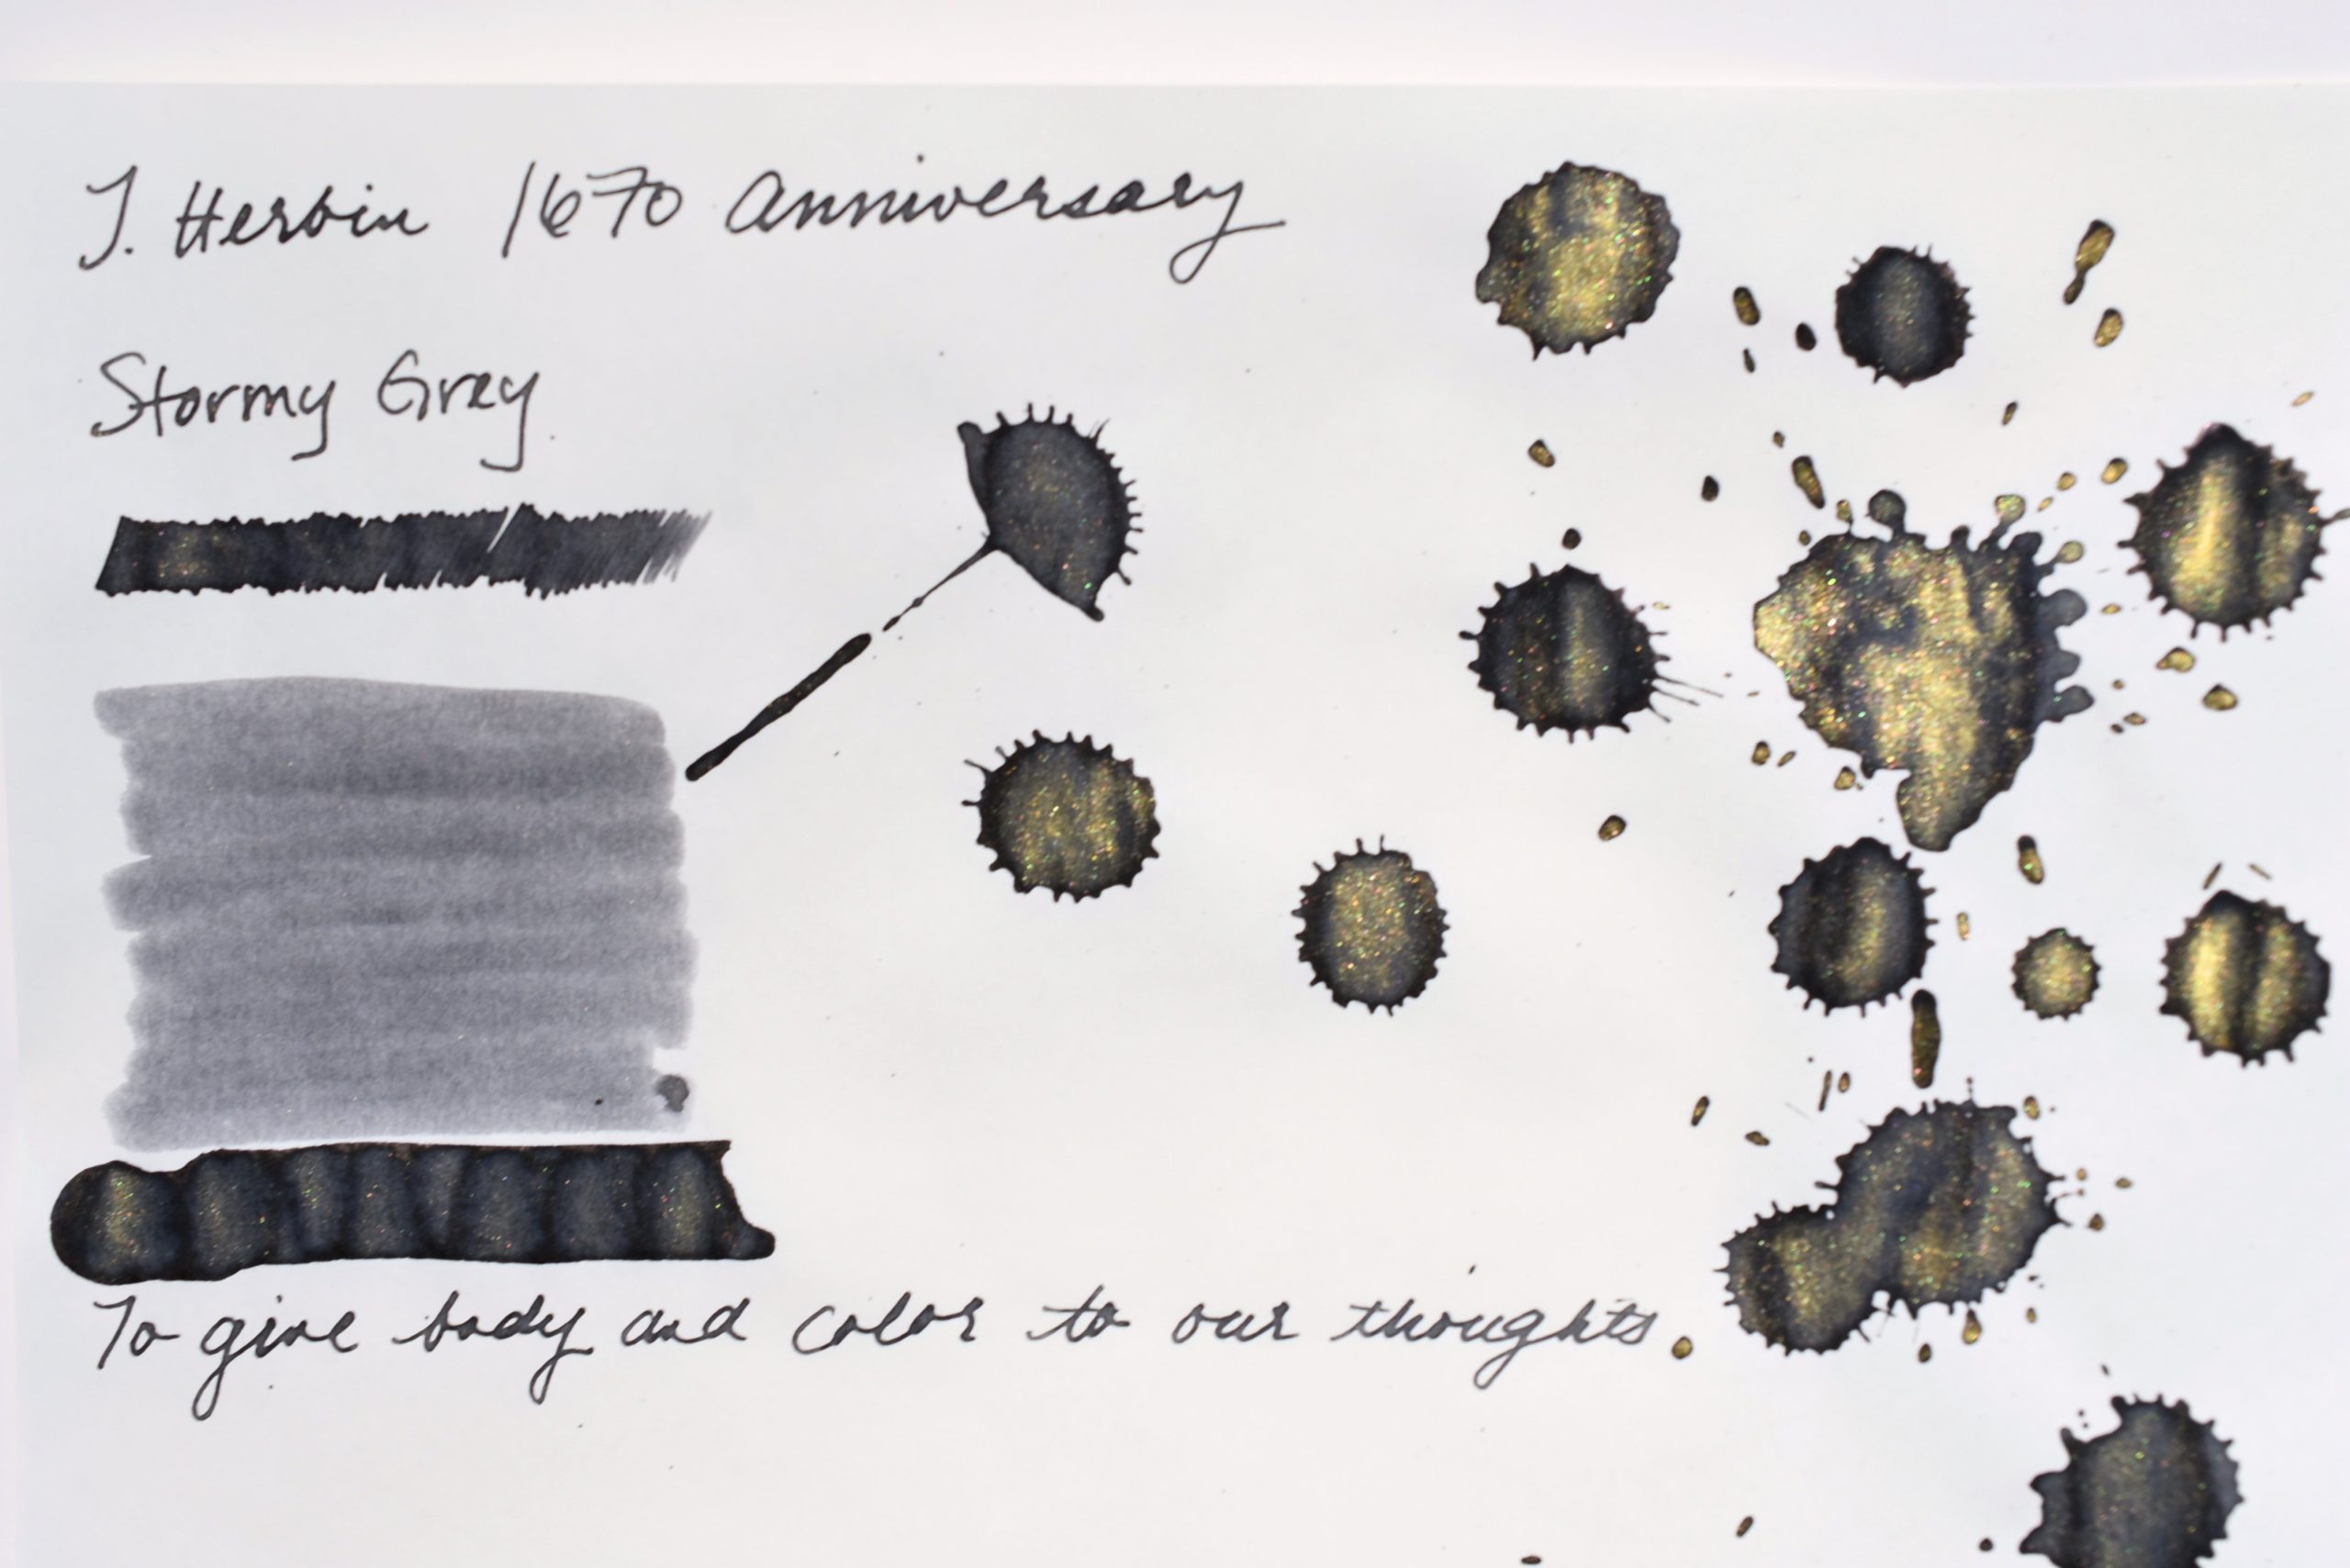 J. Herbin 1670 Anniversary
Stormy Gray
To give body and color to our thoughts